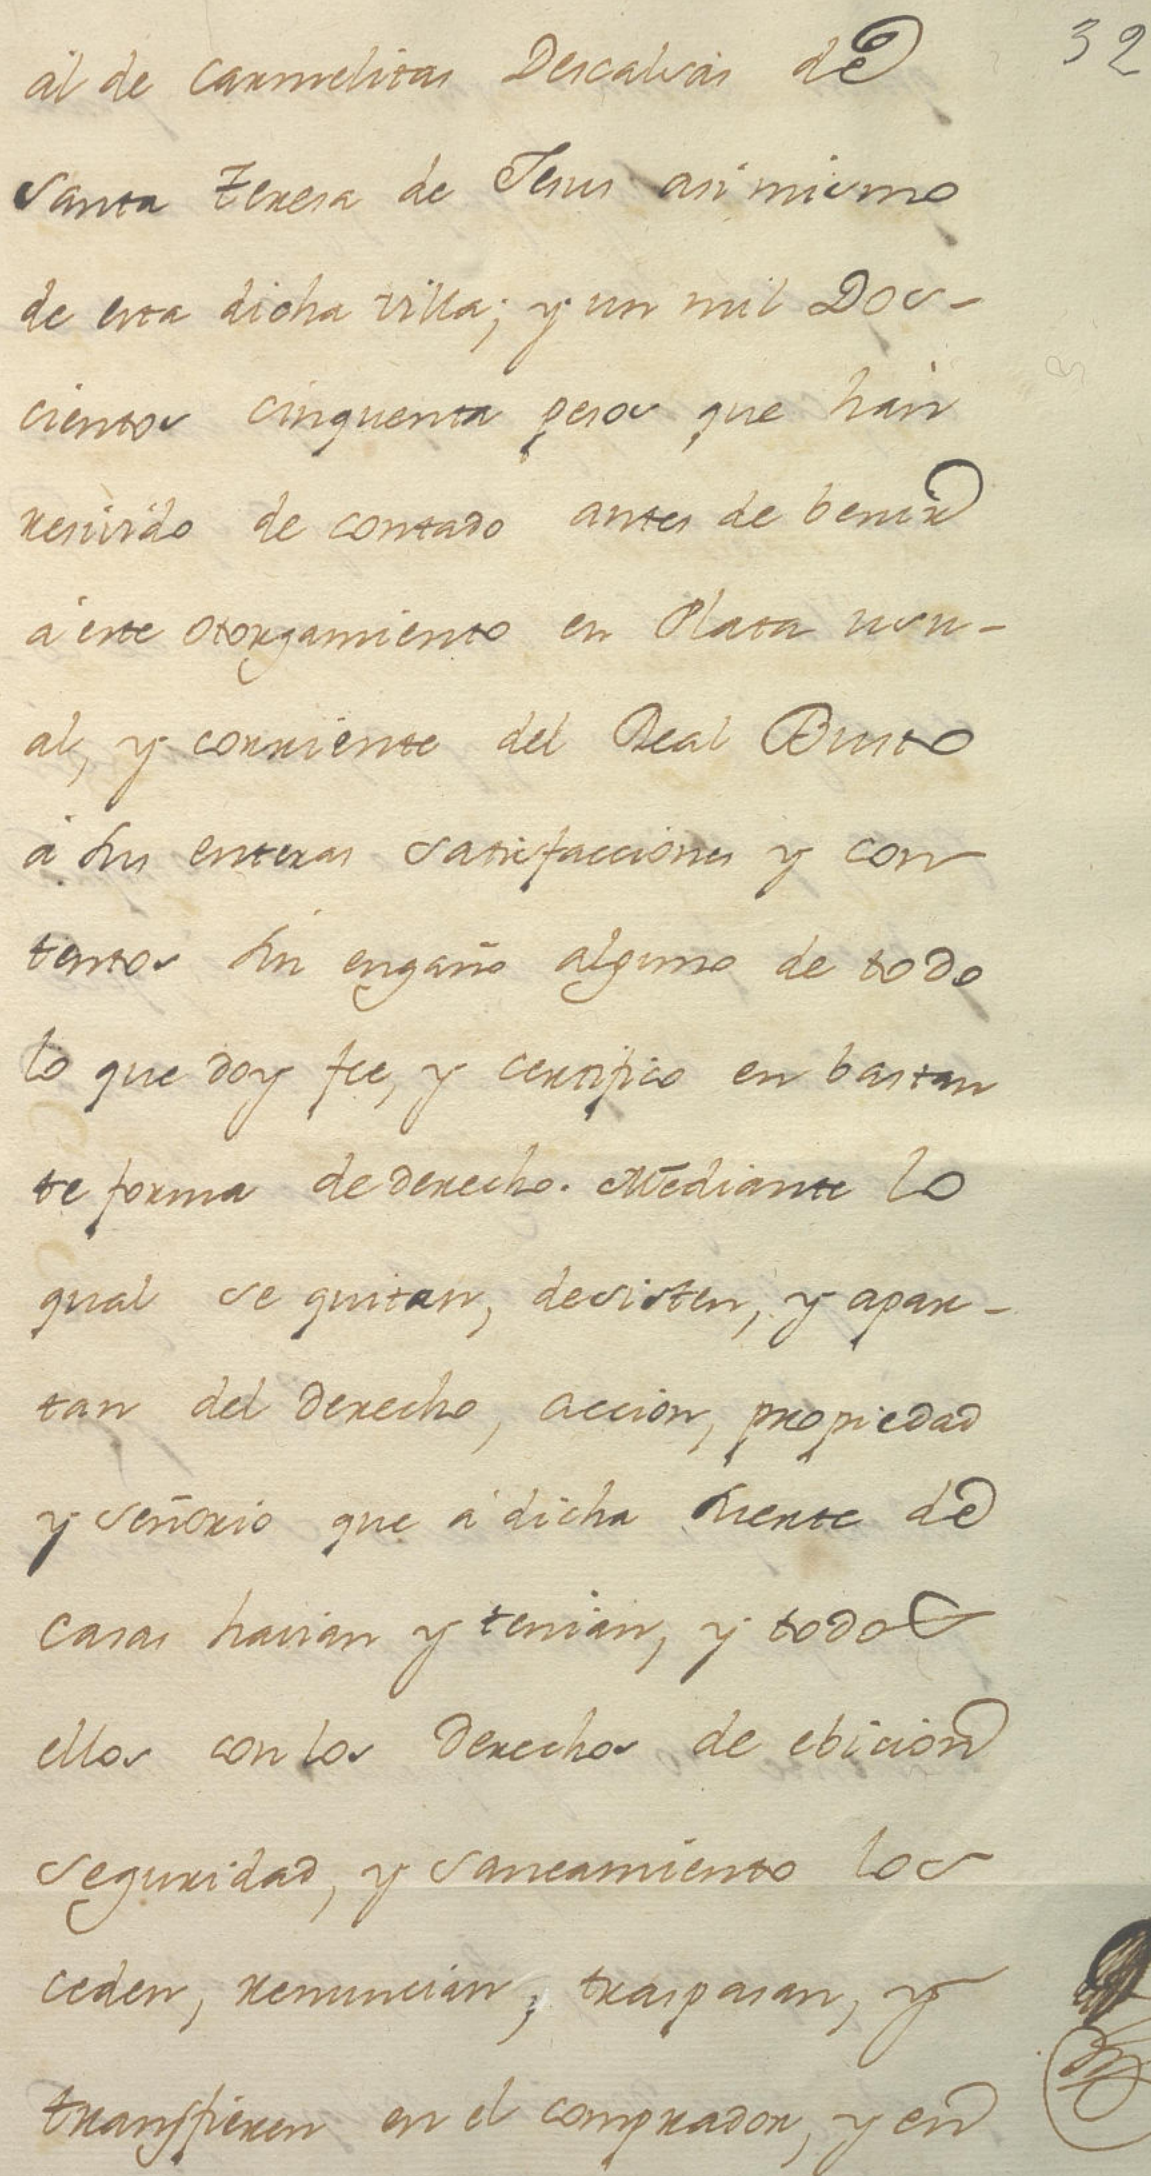 32
al de Carmelitas Descalsas de
Santa Teresa de Jesus asi mismo
de esta dicha villa; y un mil Dos-
cientos cinquenta pesos que han
resivido de contado antes de benir
á este otorgamiento en Plata usu-
al, y corriente del Real Busto
á sus enteras satisfacciones y con
tentos sin engaño alguno de todo
lo que doy fee, y certifico en bastan
te forma de derecho. Mediante lo
qual se quitan, desisten, y apar-
tan del derecho, accion, propiedad
y señorio que á dicha suerte de
casas havian y tenian, y todos
ellos con los derechos de ebicion
seguridad, y saneamiento los
ceden, renuncian, traspasan, y
transfieren en el comprador, y en